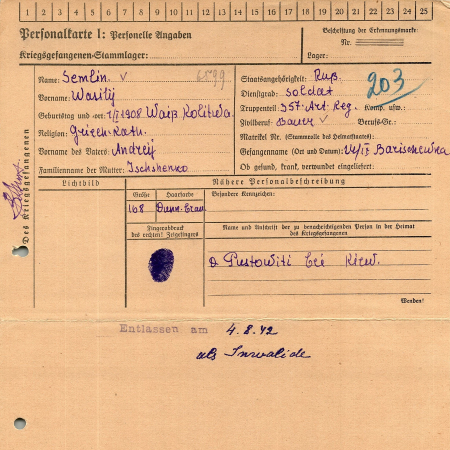 1 2 3 4 5 6 7 8 9 10 11 12 13 14 15 16 17 18 19 20 21 22 23 24 25
Personalkarte I: Personelle Angaben
Kriegsgefangenen-Stammlager:
Beschriftung der Erkennungsmarke:
Nr.
Lager:
Des Kriegsgefangenen
Name: Semlin.
Vorname: Wasilij
Geburtstag und -ort: 1/I 1908
Religion: Griech.-Kath.
Vorname des Vaters: Andrej
Familienname der Mutter: Ischshenko
Staatsangehörigkeit: Ruß.
203
Dienstgrad: Soldat
Truppenteil: 357. Art. Reg. Komp. usw.:
Zivilberuf: Bauer Berufs-Gr.:
Matrikel Nr. (Stammrolle des Heimatstaates):
Gefangennahme (Ort und Datum):
Ob gesund, krank, verwundet eingeliefert:
Lichtbild
Nähere Personalbeschreibung
Größe
Haarfarbe
Besondere Kennzeichen:
168
Fingerabdruck
des rechten! Zeigefingers
Name und Anschrift der zu benachrichtigenden Person in der Heimat
des Kriegsgefangenen
D. Pustowiti bei Kiew.
Wenden!
Entlassen am 4.8.42
als Invalide